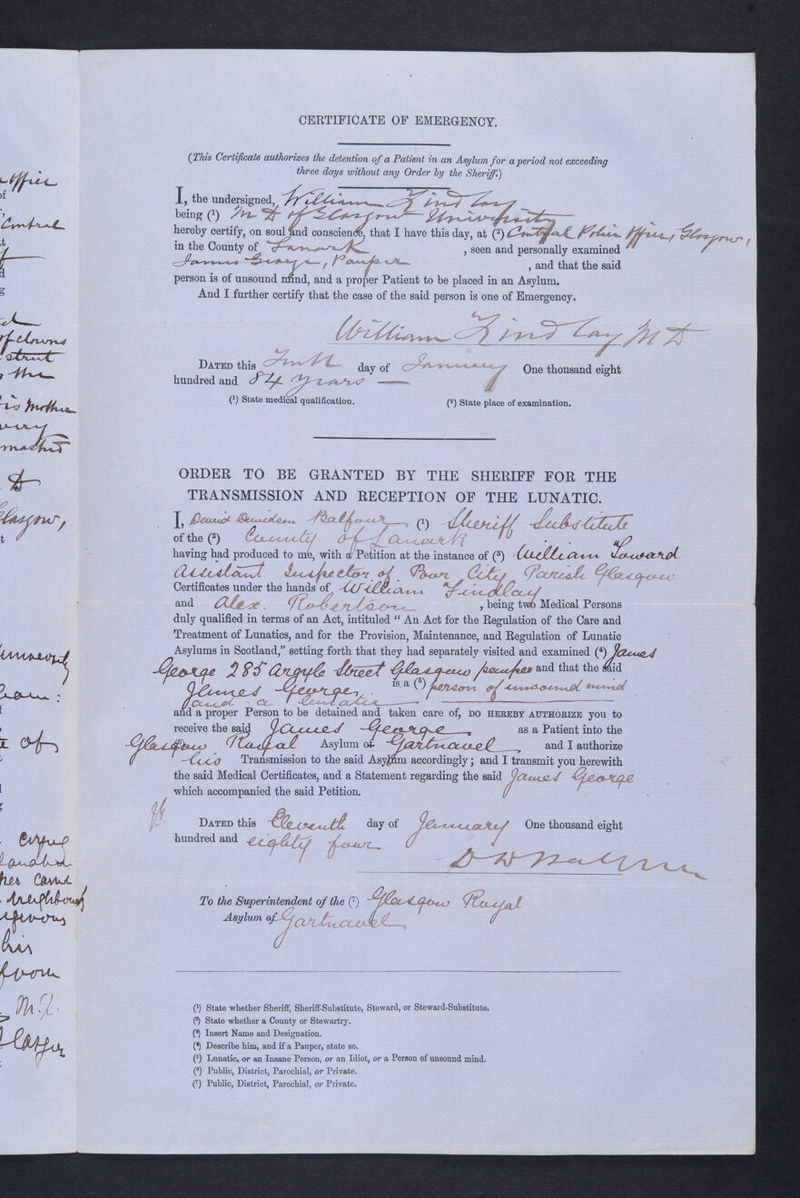 CERTIFICATE OF EMERGENCY.
(This Certificate authorizes the detention of a Patient in an Asylum for a period not exceeding
three days without any Order by the Sheriff.)
I, the undersigned, William Findlay
being (1) M D of Glasgow University
hereby certify, on soul and conscience, that I have this day, at (2) Central Police Office, Glasgow,
in the County of Lanark , seen and personally examined
James George, Pauper , and that the said
person is of unsound mind, and a proper Patient to be placed in an Asylum.
And I further certify that the case of the said person is one of Emergency.
William Findlay M D
DATED this Tenth day of January One thousand eight
hundred and 84 years
(1) State medical qualification. (2) State place of examination.
ORDER TO BE GRANTED BY THE SHERIFF FOR THE
TRANSMISSION AND RECEPTION OF THE LUNATIC.
I, David Davidson Balfour (1) Sheriff Substitute
of the (2) County of Lanark
having had produced to me, with a Petition at the instance of (3) William Toward
Assistant Inspector of Poor City Parish Glasgow
Certificates under the hands of William Findlay
and Alex. Robertson , being two Medical Persons
duly qualified in terms of an Act, intituled “ An Act for the Regulation of the Care and
Treatment of Lunatics, and for the Provision, Maintenance, and Regulation of Lunatic
Asylums in Scotland,” setting forth that they had separately visited and examined (4) James
George 285 Argyle Street Glasgow pauper and that the said
James George, is a (5) person of unsound mind
and a lunatic
and a proper Person to be detained and taken care of, DO HEREBY AUTHORIZE you to
receive the said James George as a Patient into the
Glasgow Royal Asylum of Gartnavel and I authorize
his Transmission to the said Asylum accordingly; and I transmit you herewith
the said Medical Certificates, and a Statement regarding the said James George
which accompanied the said Petition.
DATED this Eleventh day of January One thousand eight
hundred and eighty four
D D Balfour
To the Superintendent of the (7) Glasgow Royal
Asylum of Gartnavel
(1) State whether Sheriff, Sheriff-Substitute, Steward, or Steward-Substitute.
(2) State whether a County or Stewartry.
(3) Insert Name and Designation.
(4) Describe him, and if a Pauper, state so.
(5) Lunatic, or an Insane Person, or an Idiot, or a Person of unsound mind.
(6) Public, District, Parochial, or Private.
(7) Public, District, Parochial, or Private.